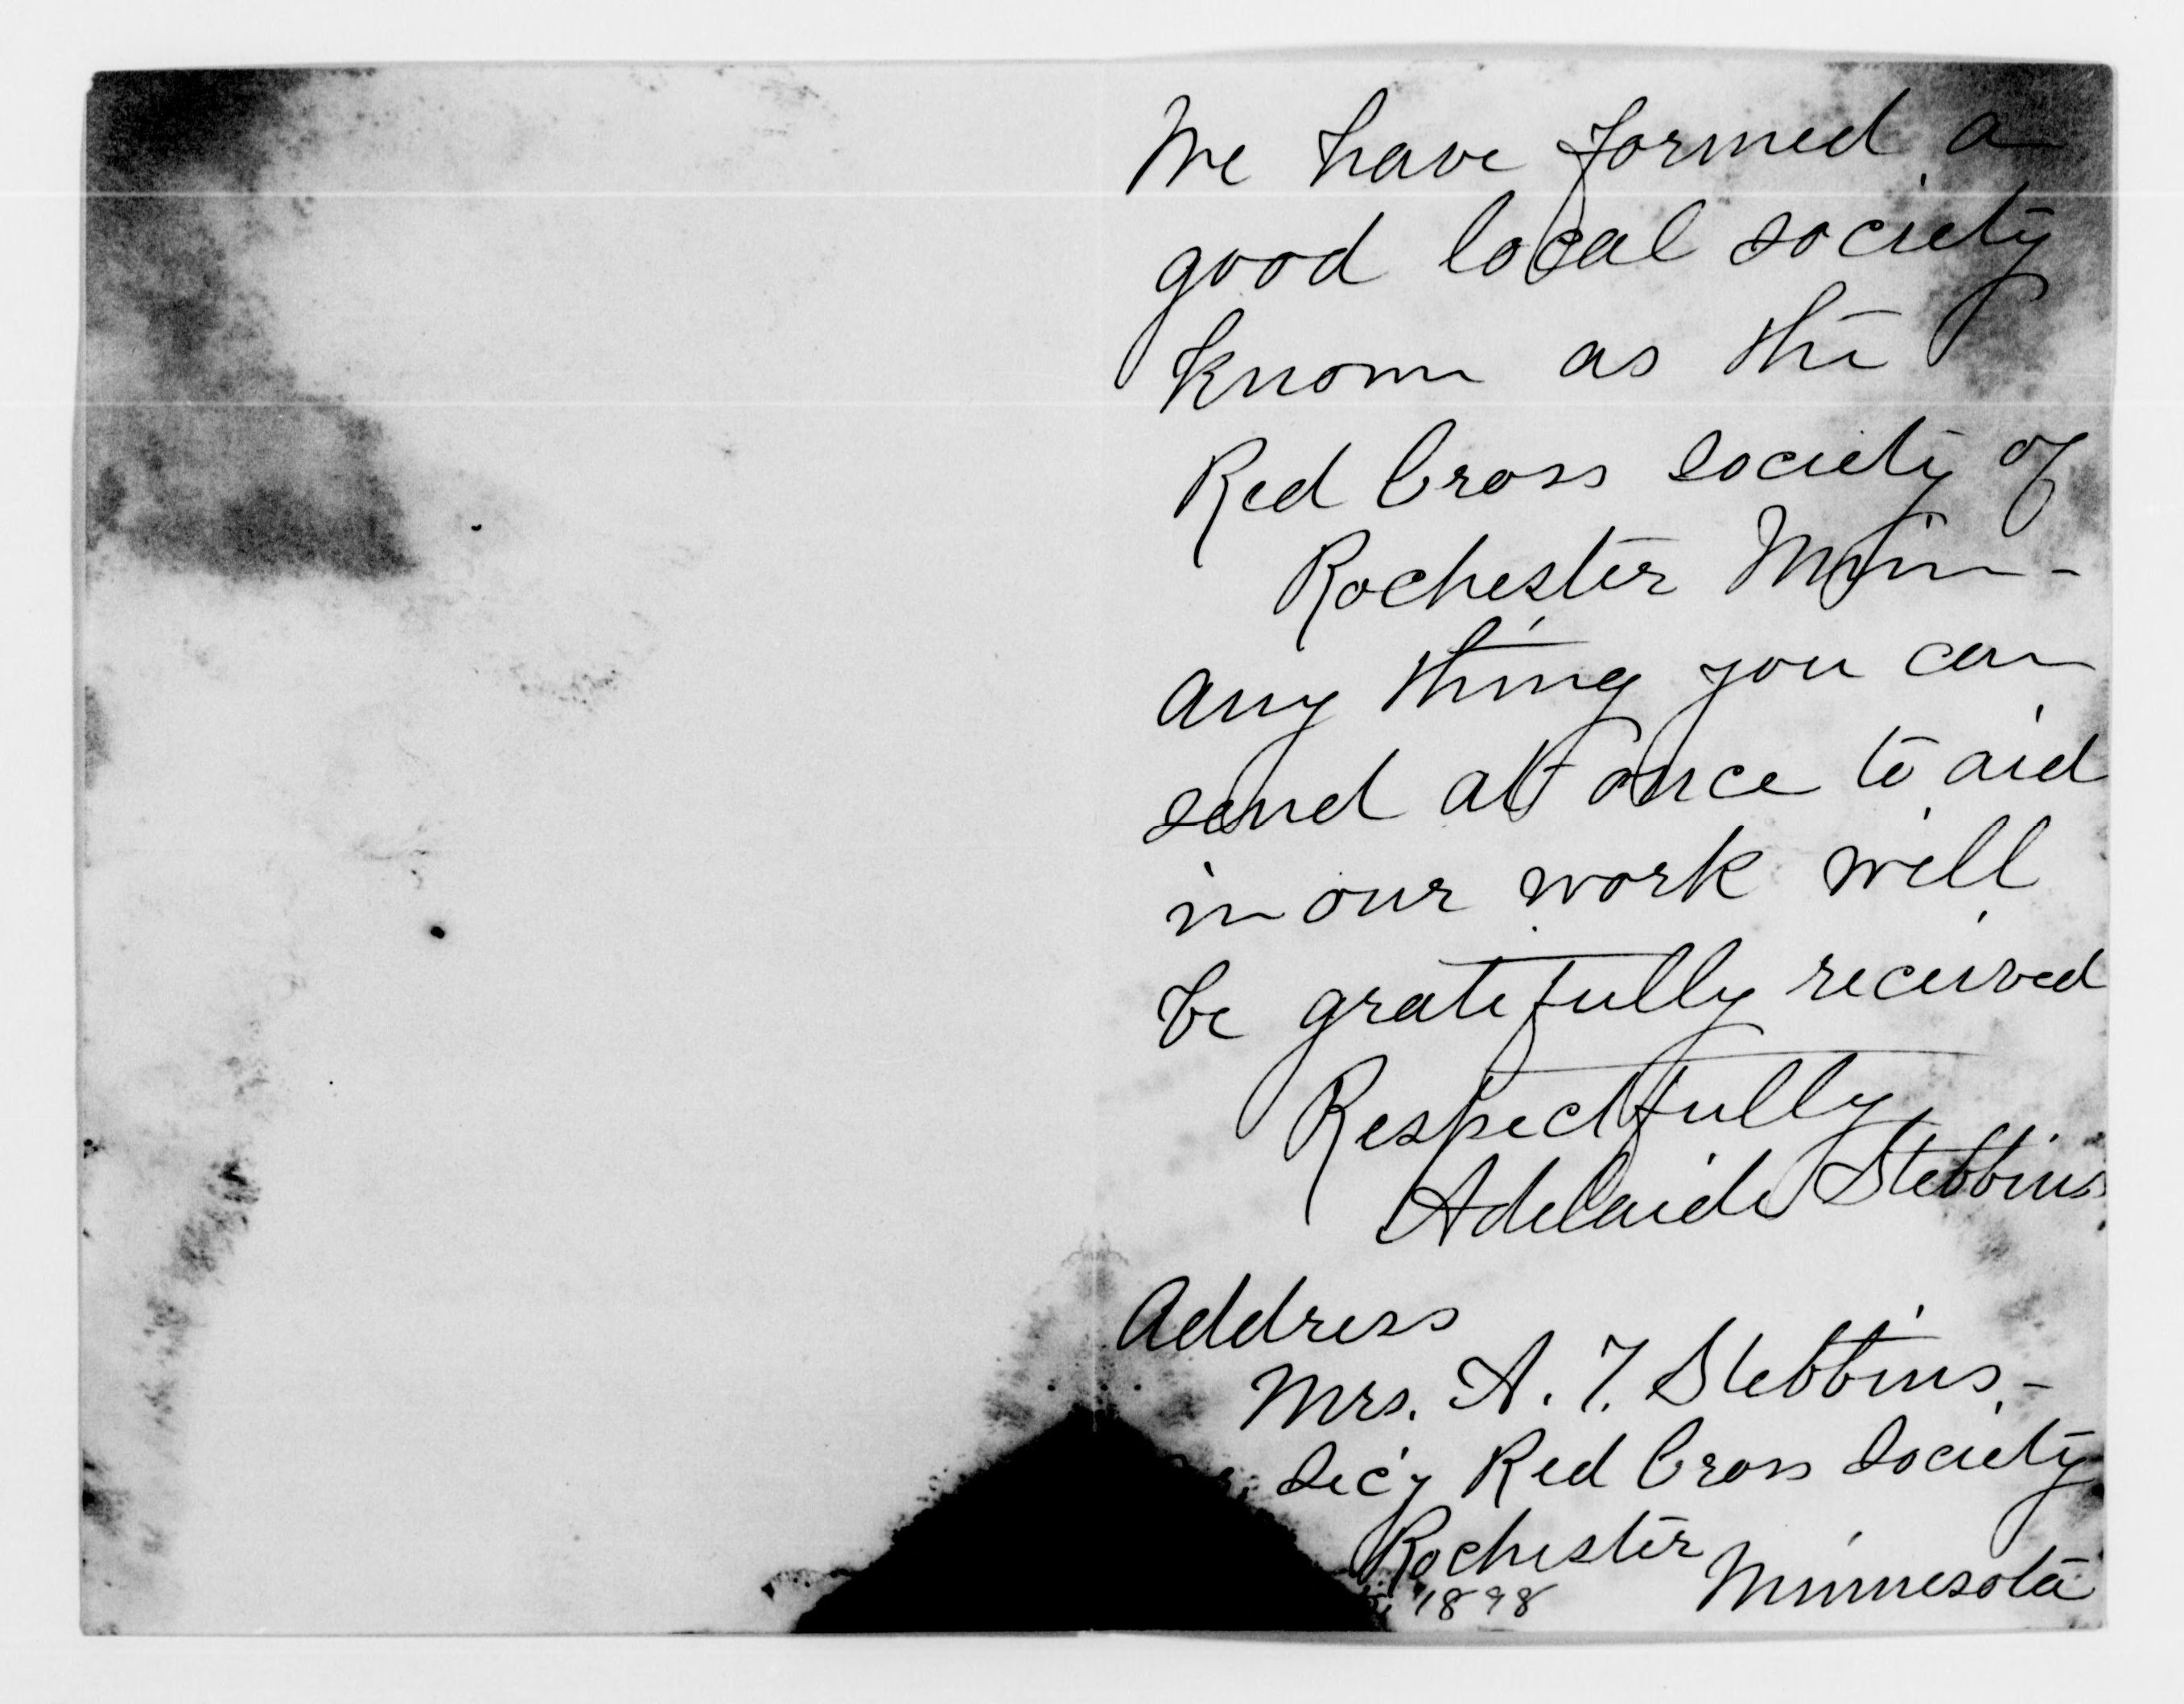 We have formed a
good local society
known as the
Red Cross society of
Rochester Minn-
any thing you can
send at once to aid
in our work will
be gratefully received
Respectfully
Adelaide Stebbins
Address
Mrs. A. T. Stebbins.-
Sec'y Red Cross Society
Rochester
Minnesota
1898